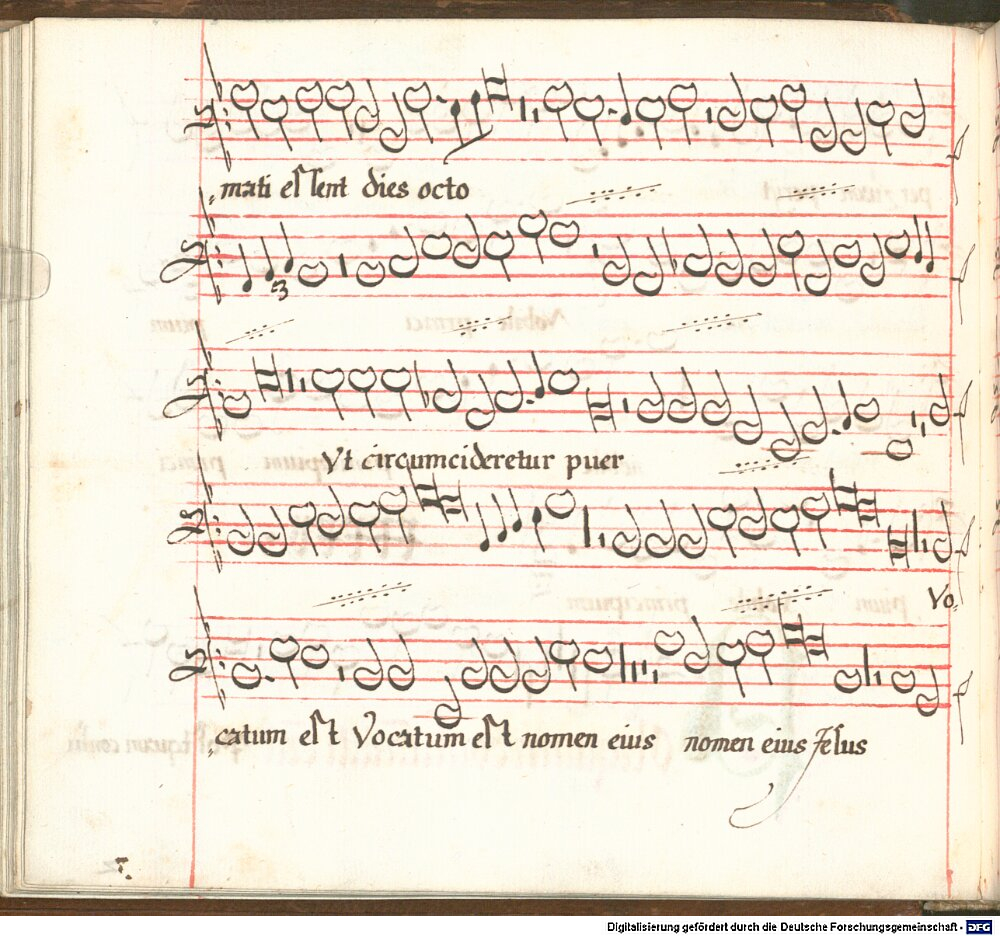 mati essent dies octo
3
Vt circumcideretur puer
Vo,
catum est Vocatum est nomen eius nomen eius Jesus
Digitalisierung gefördert durch die Deutsche Forschungsgemeinschaft - DFG